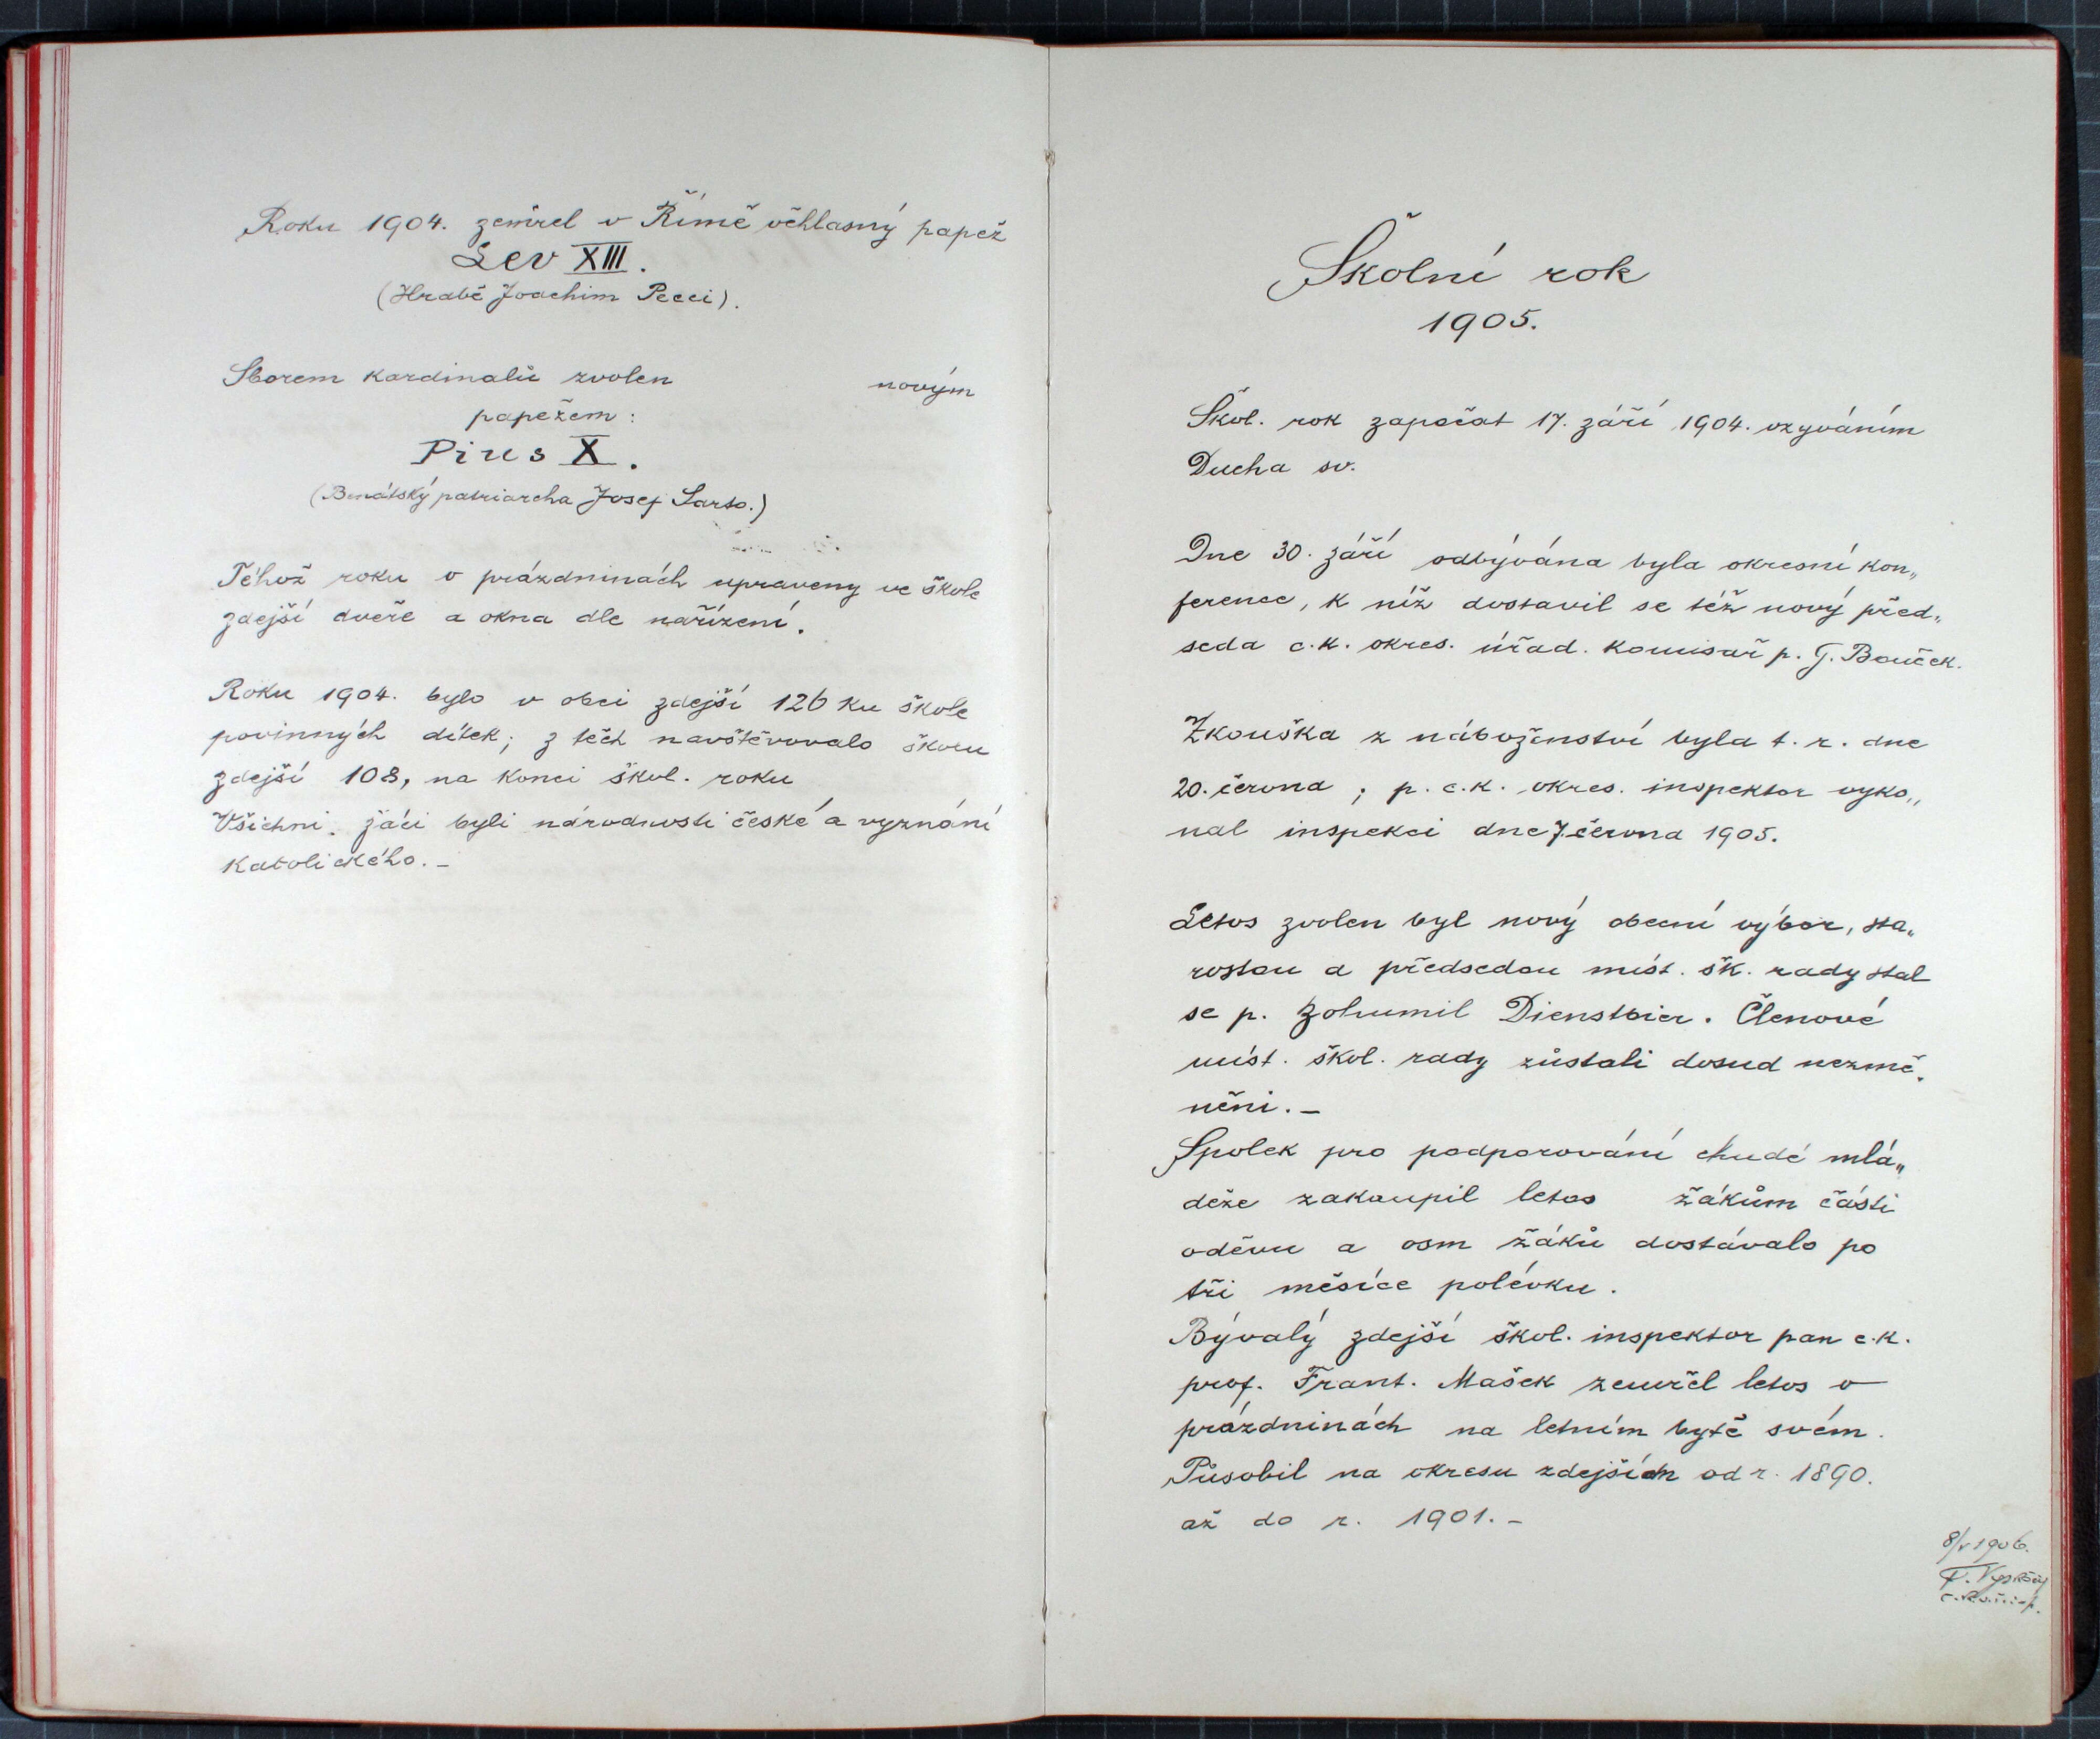 Roku 1904. zemřel v Římě věhlasný papež
Lev XIII.
(Hrabě Joachim Pecci).
Sborem kardinalů zvolen novým
papežem:
Pius X.
(Benátský patriarcha Josef Sarto.)
Téhož roku v prázdninách upraveny ve škole
zdejší dveře a okna dle nařízení.
Roku 1904. bylo v obci zdejší 126 ku škole
povinných dítek; z těch navštěvovalo školu
zdejší 108, na konci škol. roku
Všichni žáci byli národnosti české a vyznání
katolického. –
Školní rok
1905.
Škol. rok započat 17. září 1904. vzýváním
Ducha sv.
Dne 30. září odbývána byla okresní kon„
ference, k níž dostavil se též nový před„
seda c.k. okres. úřad. komisař p. J. Bouček.
Zkouška z náboženství byla t. r. dne
20. června; p. c.k. okres. inspektor vyko„
nal inspekci dne 7. června 1905.
Letos zvolen byl nový obecní výbor, sta„
rostou a předsedou míst. šk. rady stal
se p. Bohumil Dienstbier. Členové
míst. škol. rady zůstali dosud nezmě„
něni. –
Spolek pro podporování chudé mlá„
deže zakoupil letos žákům části
oděvu a osm žáků dostávalo po
tři měsíce polévku.
Bývalý zdejší škol. inspektor pan c.k.
prof. Frant. Mašek zemřel letos v
prázdninách na letním bytě svém.
Působil na okresu zdejším od r. 1890.
až do r. 1901. –
8/V 1906.